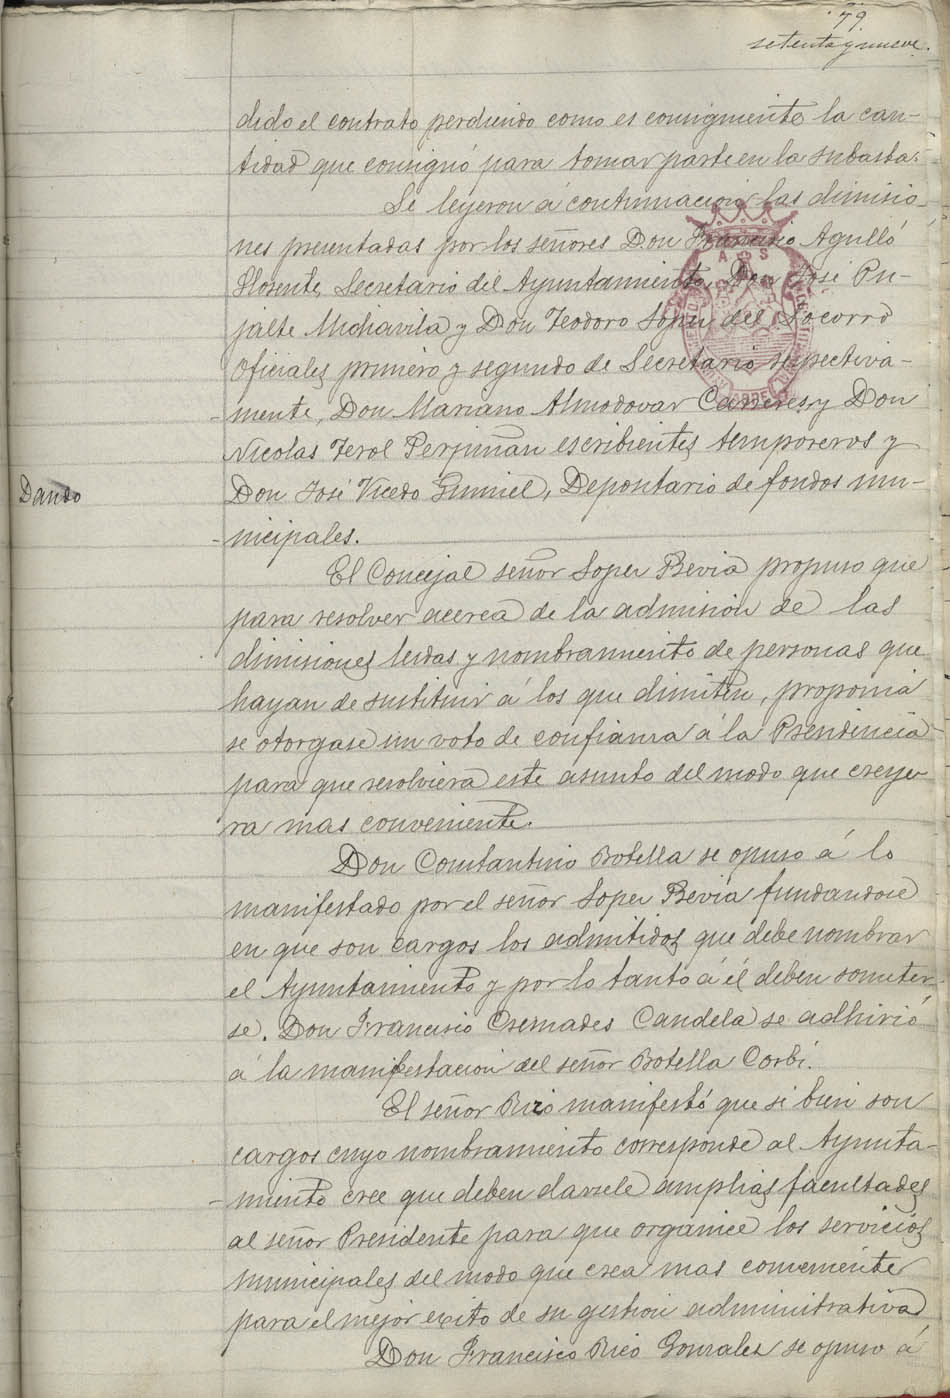 79.
setenta y nueve.
dido el contrato perdiendo como es consiguiente la can-
tidad que consignó para tomar parte en la subasta.
Se leyeron á continuacion las dimisio-
nes presentadas por los señores Don Francisco Agulló
Llorente, Secretario del Ayuntamiento, Don José Pu-
jalte Michavila y Don Teodoro Soper del Socorro
Oficiales primero y segundo de Secretario respectiva-
-mente, Don Mariano Almodovar Carreres y Don
Nicolas Terol Perpiñan escribientes temporeros y
Dando
Don José Vicedo Gumiel, Depositario de fondos mu-
-nicipales.
El Concejal señor Soper Bevia propuso que
para resolver acerca de la admision de las
dimisiones leidas y nombramiento de personas que
hayan de sustituir á los que dimiten, proponia
se otorgase un voto de confianza á la Presidencia
para que resolviera este asunto del modo que creye-
ra mas conveniente.
Don Constantino Botella se opuso á lo
manifestado por el señor Soper Bevia fundandose
en que son cargos los admitidos que debe nombrar
el Ayuntamiento y por lo tanto á él deben someter-
se. Don Francisco Candela se adhirió
á la manifestacion del señor Botella Corbí.
El señor Rizo manifestó que si bien son
cargos cuyo nombramiento corresponde al Ayunta-
-miento cree que deben darsele amplias facultades
al señor Presidente para que organice los servicios
municipales del modo que crea mas conveniente
para el mejor exito de su gestion administrativa
Don Francisco Rico Gonzalez se opuso á